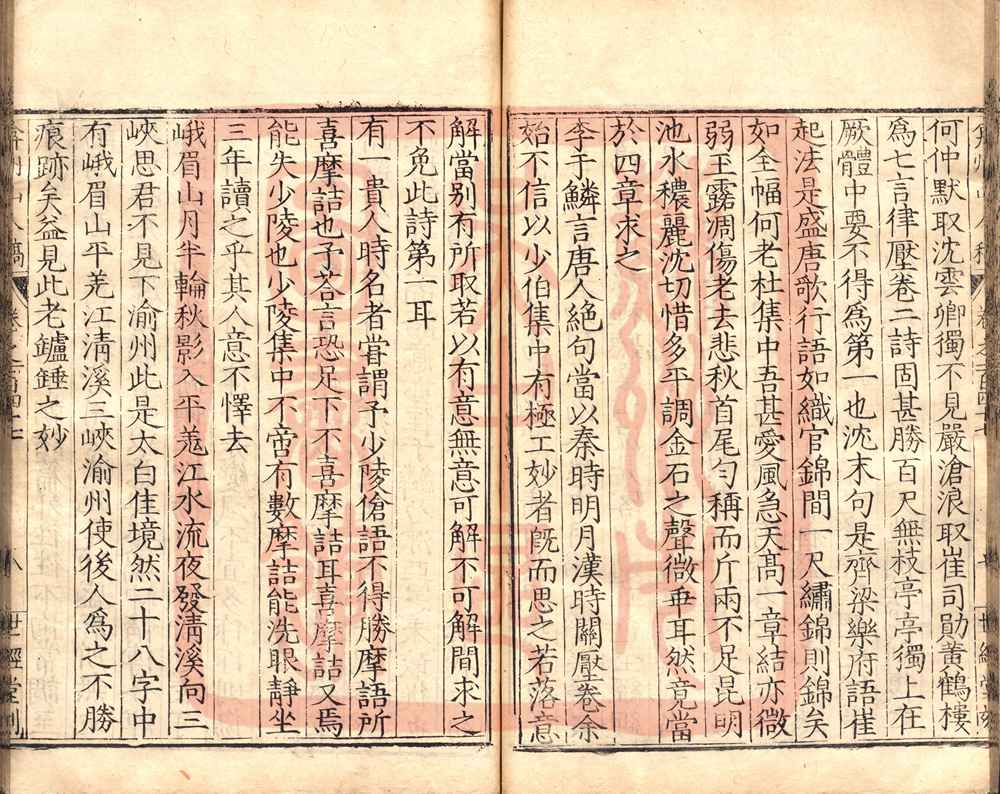 何仲默取沈雲卿獨不見嚴滄浪取崔司勛黄鶴樓
爲七言律壓卷二詩固甚勝百尺無枝亭亭獨上在
厥體中要不得爲第一也沈末句是齊梁樂府語崔
起法是盛唐歌行語如織官錦間一尺繡錦則錦矣
如全幅何老杜集中吾甚愛風急天髙一章結亦微
弱玉露凋傷老去悲秋首尾匀稱而斤兩不足昆明
池水穠麗沈切惜多平調金石之聲微乖耳然竟當
於四章求之
李于鱗言唐人絶句當以秦時明月漢時關壓卷余
始不信以少伯集中有極工妙者旣而思之若落意
解當别有所取若以有意無意可解不可解間求之
不免此詩第一耳
有一貴人時名者甞謂予少陵傖語不得勝摩詰所
喜摩詰也予荅言恐足下不喜摩詰耳喜摩詰又焉
能失少陵也少陵集中不啻有數摩詰能洗眼靜坐
三年讀之乎其人意不懌去
峨眉山月半輪秋影入平羗江水流夜發淸溪向三
峽思君不見下渝州此是太白佳境然二十八字中
有峨眉山平羌江淸溪三峽渝州使後人爲之不勝
痕跡矣益見此老鑪錘之妙
弇州山人稿 卷之一百四十七 八 世經堂刻